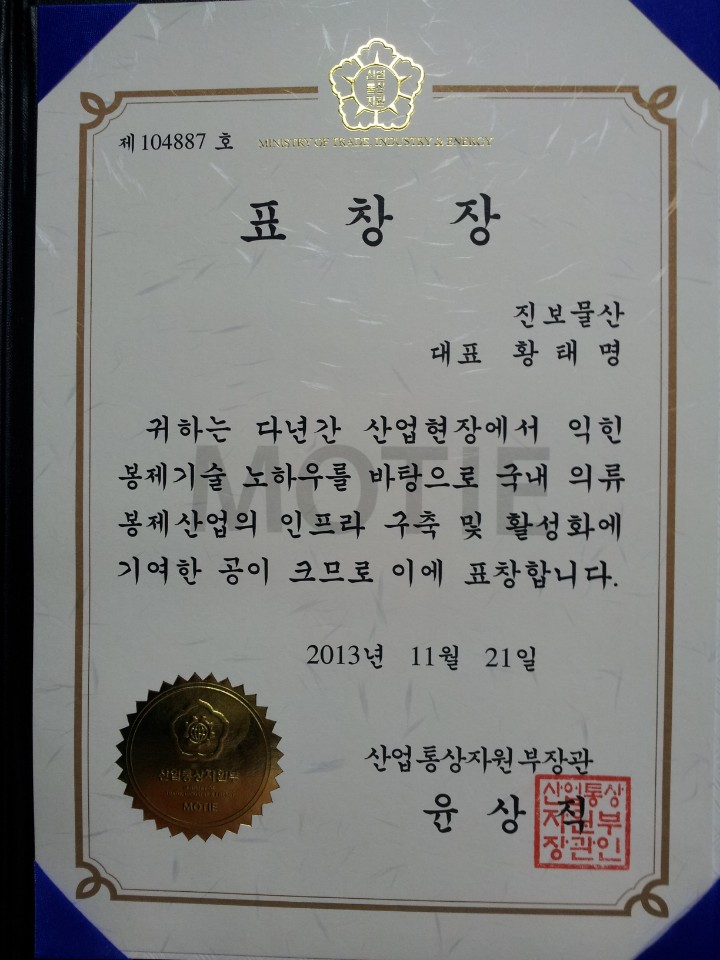 산업
통상
자원
MINISTRY OF TRADE, INDUSTRY & ENERGY
제 104887 호
표 창 장
진보물산
대표 황 태 명
귀하는 다년간 산업현장에서 익힌
봉제기술 노하우를 바탕으로 국내 의류
MOTIE
봉제산업의 인프라 구축 및 활성화에
기여한 공이 크므로 이에 표창합니다.
2013년 11월 21일
산업통상자원부
MOTIE
산업통상자원부장관
윤 상 직
산업통상
자원부
장관인